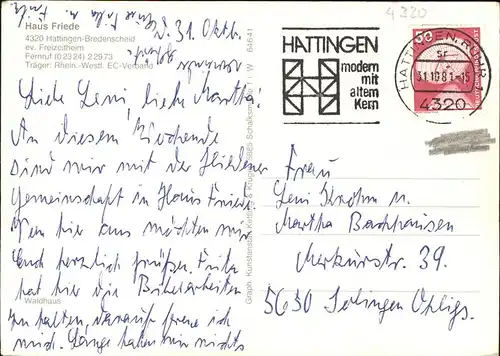 4320
Haus Friede
4320 Hattingen-Bredenscheid
ev. Freizeitheim
Fernruf (0 23 24) 2 29 73
Träger: Rhein.-Westf. EC-Verband
d. 31. Oktb.
Liebe Leni, liebe Martha!
An diesem Wochende
sind wir mit der
Gemeinschaft in Haus Friede.
Von hier aus möchten wir
Euch herzlich grüßen. Fritz
hat hier die Bibelarbeiten
zu halten, darauf freue ich
mich. Lange haben wir nichts
Waldhaus
64641
HATTINGEN
modern
mit
altem
Kern
HATTINGEN, RUHR 1
sr
31.10.81-15
4320
50
Frau
Leni Krohm u.
Martha Backhausen
Merkurstr. 39.
5630 Solingen Ohligs.